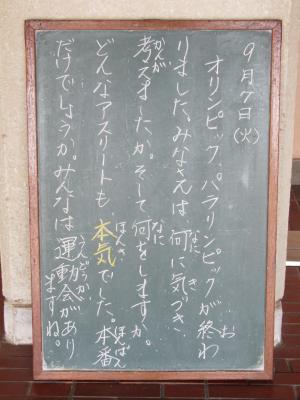 ９月７日(火)
オリンピック、パラリンピックが終わ
りました。みなさんは、何に気づき、
考えましたか。そして何をしますか。
どんなアスリートも本気でした。本番
だけでしょうか。みんなは運動会があり
ますね。